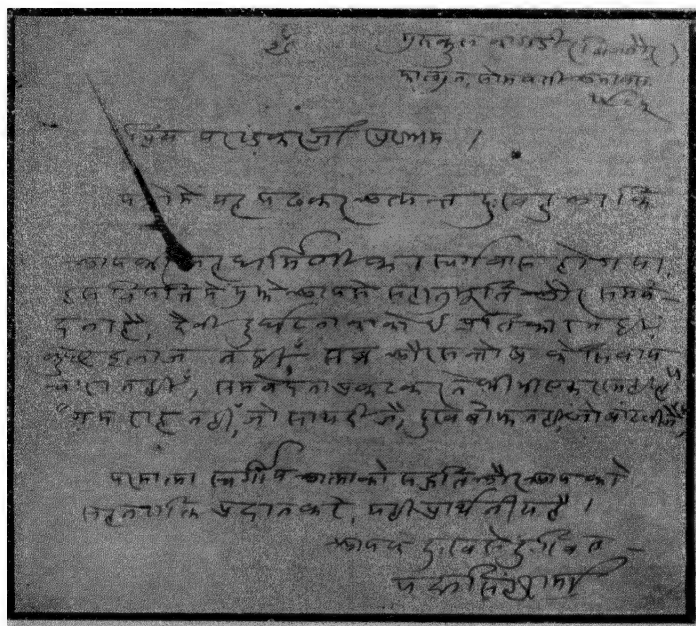 ॐ
गुरुकुल कांगड़ी (बिजनौर)
फाल्गुन, सोमवती अमावस
प्रिय पराड़करजी प्रणाम ।
पत्रों में यह पढ़कर अत्यन्त दुःख हुआ कि
आपकी सहधर्मिणी का स्वर्गवास हो गया,
इस विपत्ति में मुझे आपसे सहानुभूति और समवे-
दना है, दैवी दुर्घटनाओं का कोई प्रतिकार नहीं,
कुछ इलाज नहीं, सब्र और सन्तोष के सिवाय
चारा नहीं, समवेदना प्रकट करने की भी
"ग़म राह नहीं, जो साथ दीजे, दुःख बोझ नहीं, जो बांट लीजे"
परमात्मा स्वर्गीय आत्मा को सद्गति और आपको
सहनशक्ति प्रदान करे, यही प्रार्थनीय है ।
आपके दुःख से दुःखित -
पद्मसिंह शर्मा